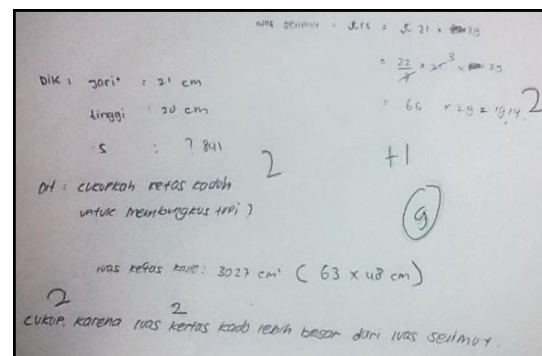 luas selimut : πrs = π 21 × 29
= 22/7 × 21 3 × 29
= 66 × 29 = 1914 2
Dik : jari² : 21 cm
tinggi : 20 cm
s : ? 841
2
+1
Dit : cukupkah kertas kadoh
untuk membungkus topi ?
9
luas kertas kado : 3027 cm² ( 63 × 48 cm )
2 2
cukup, karena luas kertas kado lebih besar dari luas selimut.